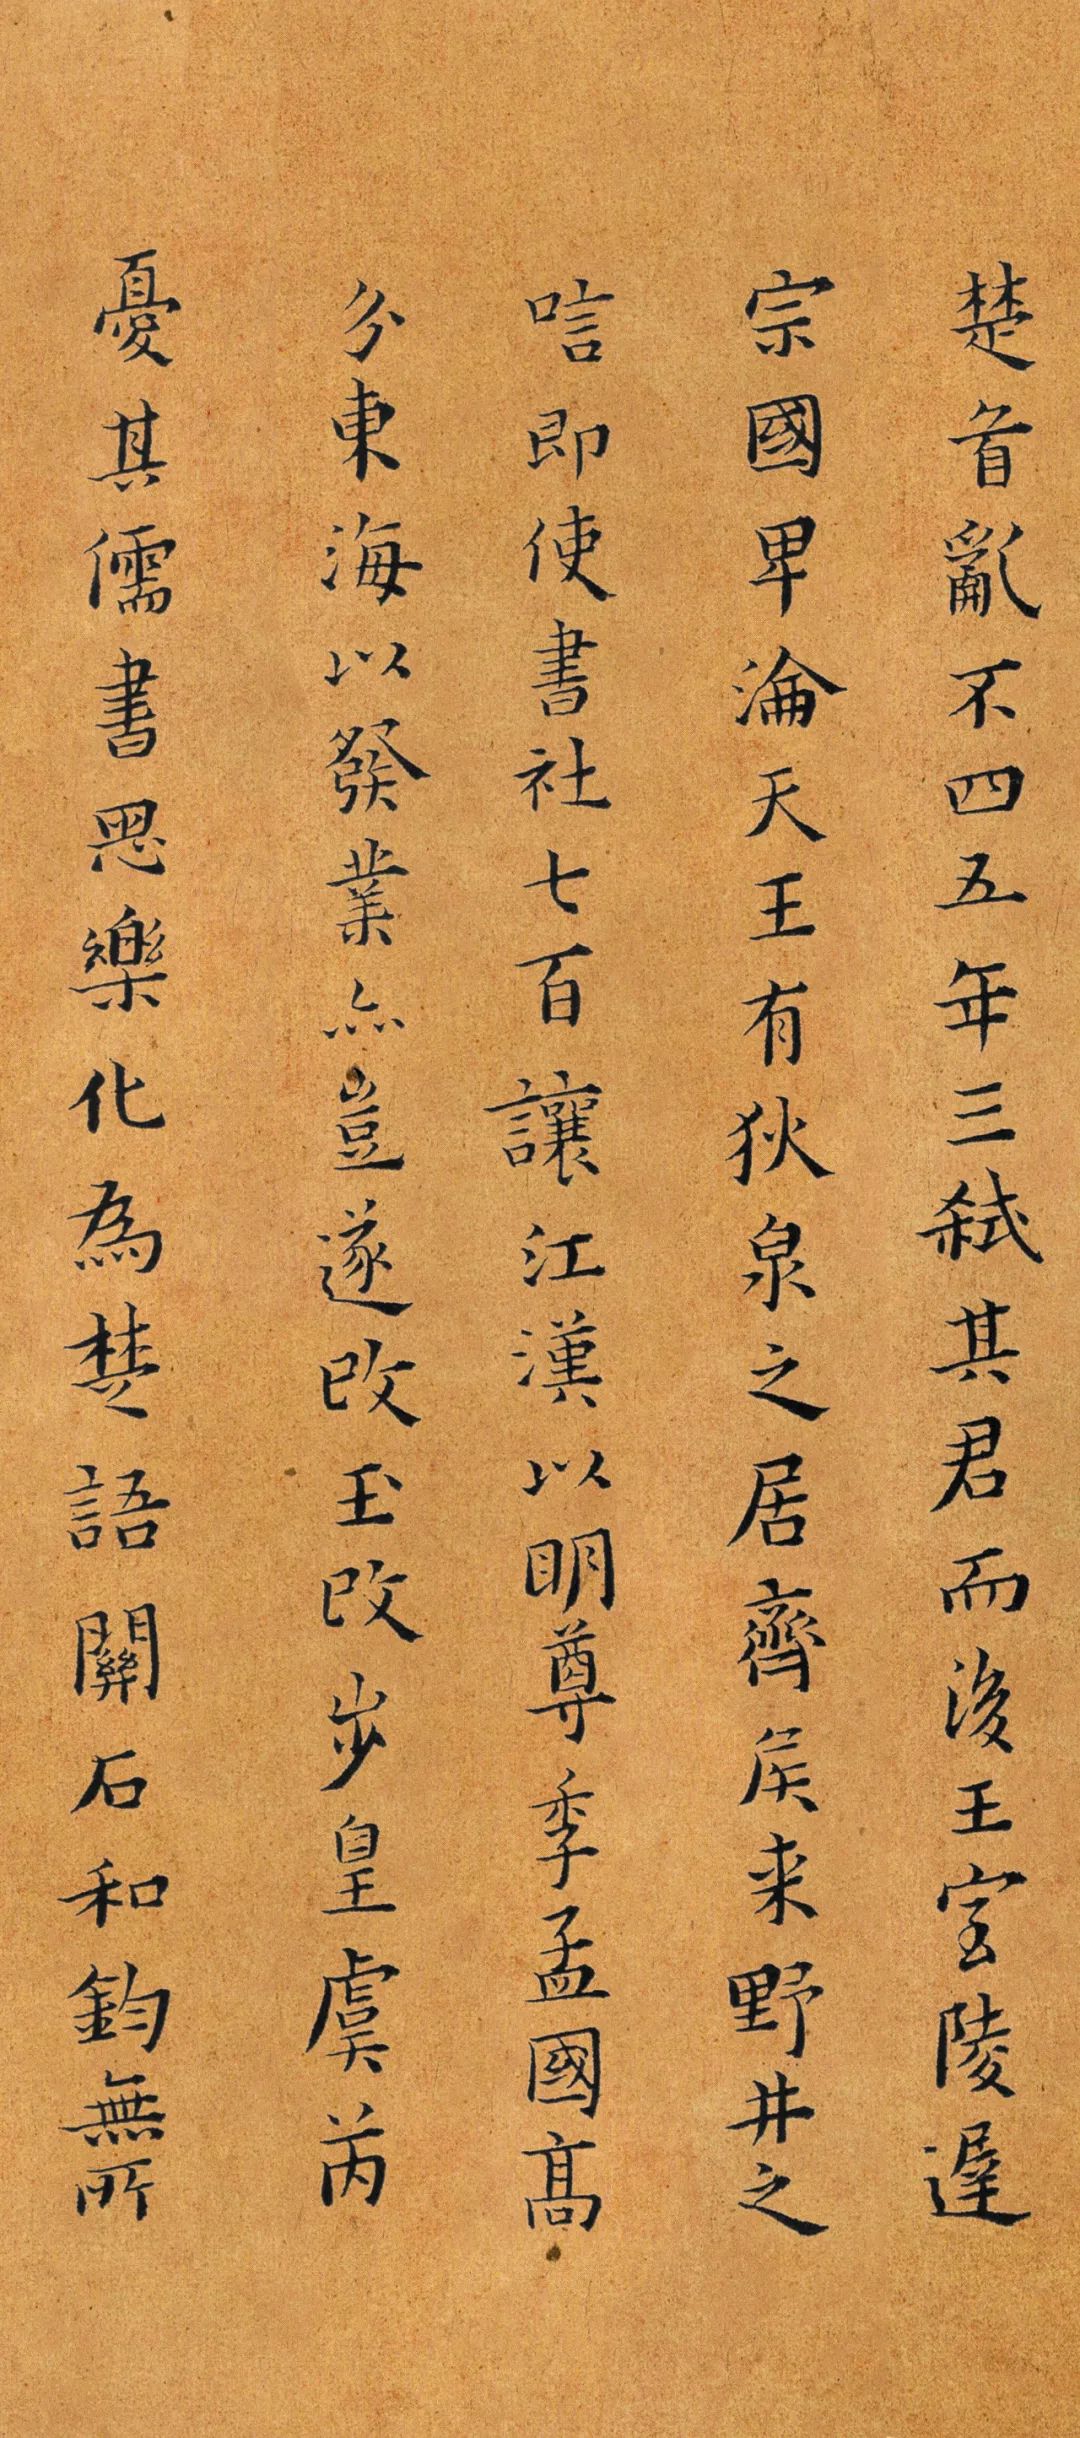 楚首亂不四五年三弑其君而後王室陵遲
宗國卑淪天王有狄泉之居齊侯来野井之
唁即使書社七百讓江漢以明尊季孟國高
分東海以發業亦豈遂改玉改步皇虞芮
憂其儒書思樂化為楚語關石和鈞無所